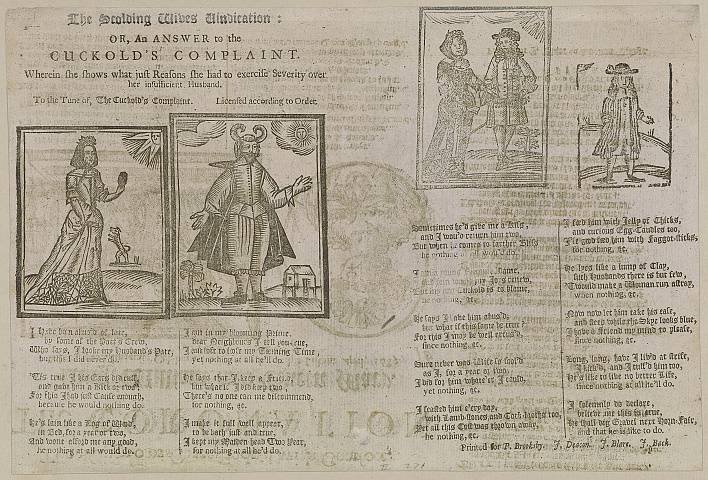 The Scolding Wives Vindication:
OR, An ANSWER to the
CUCKOLD'S COMPLAINT.
Wherein she shows what just Reasons she had to exercise Severity over
her insufficient Husband.
To the Tune of, The Cuckold's Complaint. Licensed according to Order.
I Have been abus'd of late,
by some of the Poet's Crew,
Who says, I broke my Husband's Pate,
but this I did never do.
'Tis true I his Ears
and gave him a
For this I had just Cause enough,
because he would nothing do.
He's lain like a Log of Wood
in Bed, for a year or two,
And wont afford me any good,
he nothing at all would do.
I am in my blooming Prime,
dear Neighbours I tell you true,
I am loth to lose my Teeming Time,
yet nothing at all he'll do.
He says that I keep a
but what if I did keep two;
There's no one can me discommend,
for nothing, &c.
I make it full well appear,
to be both just and true,
I kept my Maiden head Two Year,
for nothing at all he'd do.
Sometimes he'd give me a kiss,
and I wou'd return him two,
But when he comes to farther Bliss
he nothing at all wou'd do.
I am a young
is to blame,
he nothing, &c.
He says I have him abus'd;
but what if this same be true?
For this I may be well excus'd,
since nothing, &c.
Sure never was Wife so fool'd
as I, for a year or two,
I did for him whate'er I could,
yet nothing, &c.
I feasted him e'ry day,
with Lamb-stones, and Cock-broths too,
Yet all this Cost was thrown away,
he nothing, &c.
I feed him with Jelly of Chicks,
and curious Egg-Caudles too,
I'le feed him with Faggot-sticks,
for nothing, &c.
He lyes like a lump of Clay,
such Husbands there is but few,
'Twould make a Woman run astray,
when nothing, &c.
Now now let him take his ease,
and sleep while the Skye looks blue,
I have a Friend my mind to please,
since nothing, &c.
Long, long, have I liv'd at strife,
I kick'd, and I cuff'd him too,
He's like to live no better Life,
since nothing at all he'll do.
I solemnly do declare,
believe me this is true,
He shall dig Gravel next Horn-Fair,
and that he is like to do.
Printed for P. Brooksby. J. Deacon. J. Blare. J. Back.